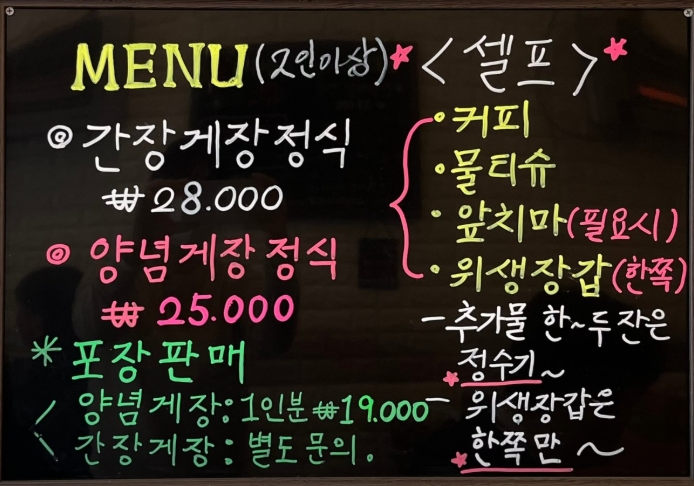 MENU (2인이상)
◎ 간장게장정식
₩ 28.000
◎ 양념게장정식
₩ 25.000
* 포장판매
양념게장: 1인분 ₩19.000
간장게장: 별도문의.
<셀프>
• 커피
• 물티슈
• 앞치마(필요시)
• 위생장갑(한쪽)
- 추가물 한~두잔은
정수기~
- 위생장갑은
한쪽만~